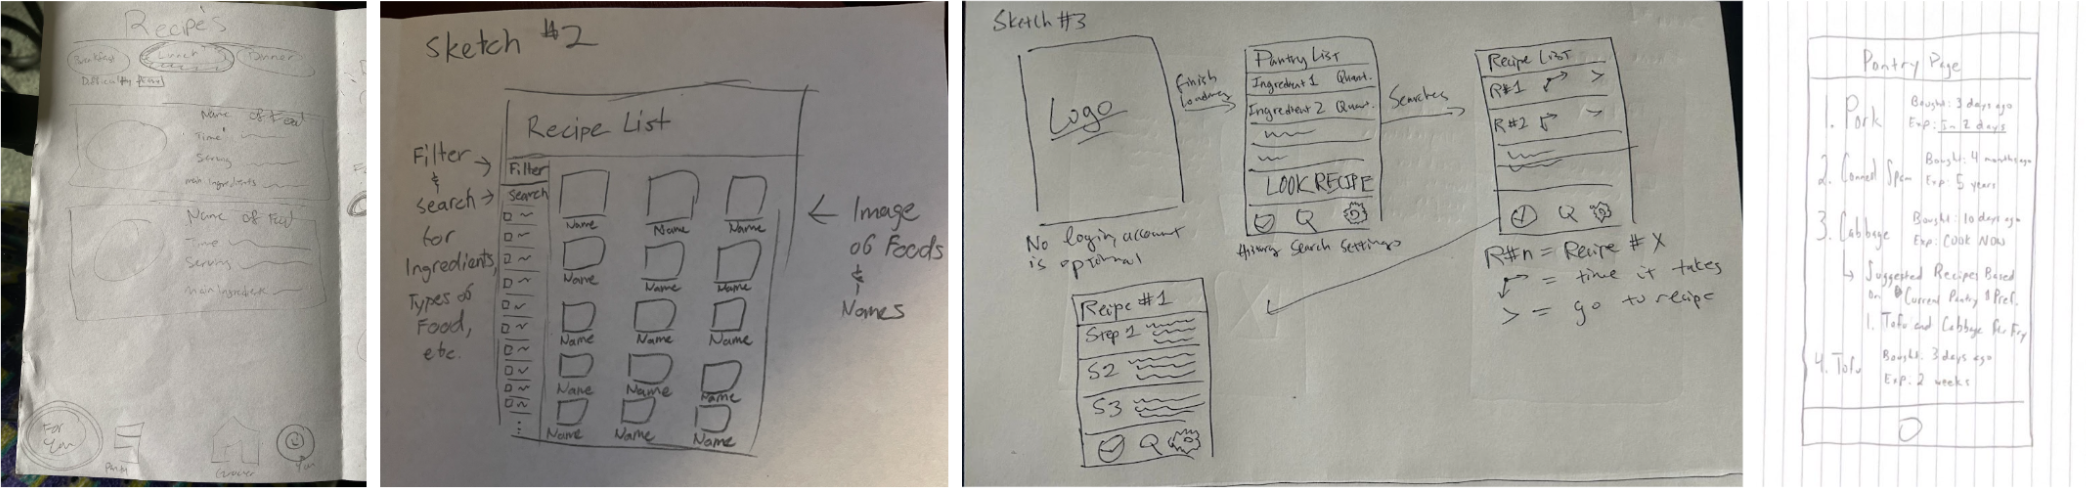 Recipe's
Breakfast
Lunch
Dinner
Difficulty
Name of Food
Time
Serving
main ingredients
Name of Food
Time
Serving
main ingredients
For You
You
Sketch #2
Recipe List
Filter
Search
Name Name Name
Name Name Name
Name Name Name
Name Name Name
Name Name Name
Filter
&
Search
for
Ingredients,
Types of
Food,
etc.
Image
of Foods
&
Names
Sketch #3
Logo
No login, account
is optional
Finish
loading
Pantry List
Ingredient 1 Quant.
Ingredient 2 Quant.
LOOK RECIPE
History Search Settings
Searches
Recipe List
R#1 >
R#2 >
R#n = Recipe # X
= time it takes
> = go to recipe
Recipe #1
Step 1
S2
S3
Pantry Page
1. Pork
Bought: 3 days ago
Exp: in 2 days
2. Canned Spam
Bought: 4 months ago
Exp: 5 years
3. Cabbage
Bought: 10 days ago
Exp: COOK NOW
Suggested Recipes Based
on Current Pantry & Pref.
1. Tofu and Cabbage Stir Fry
4. Tofu
Bought: 3 days ago
Exp: 2 weeks